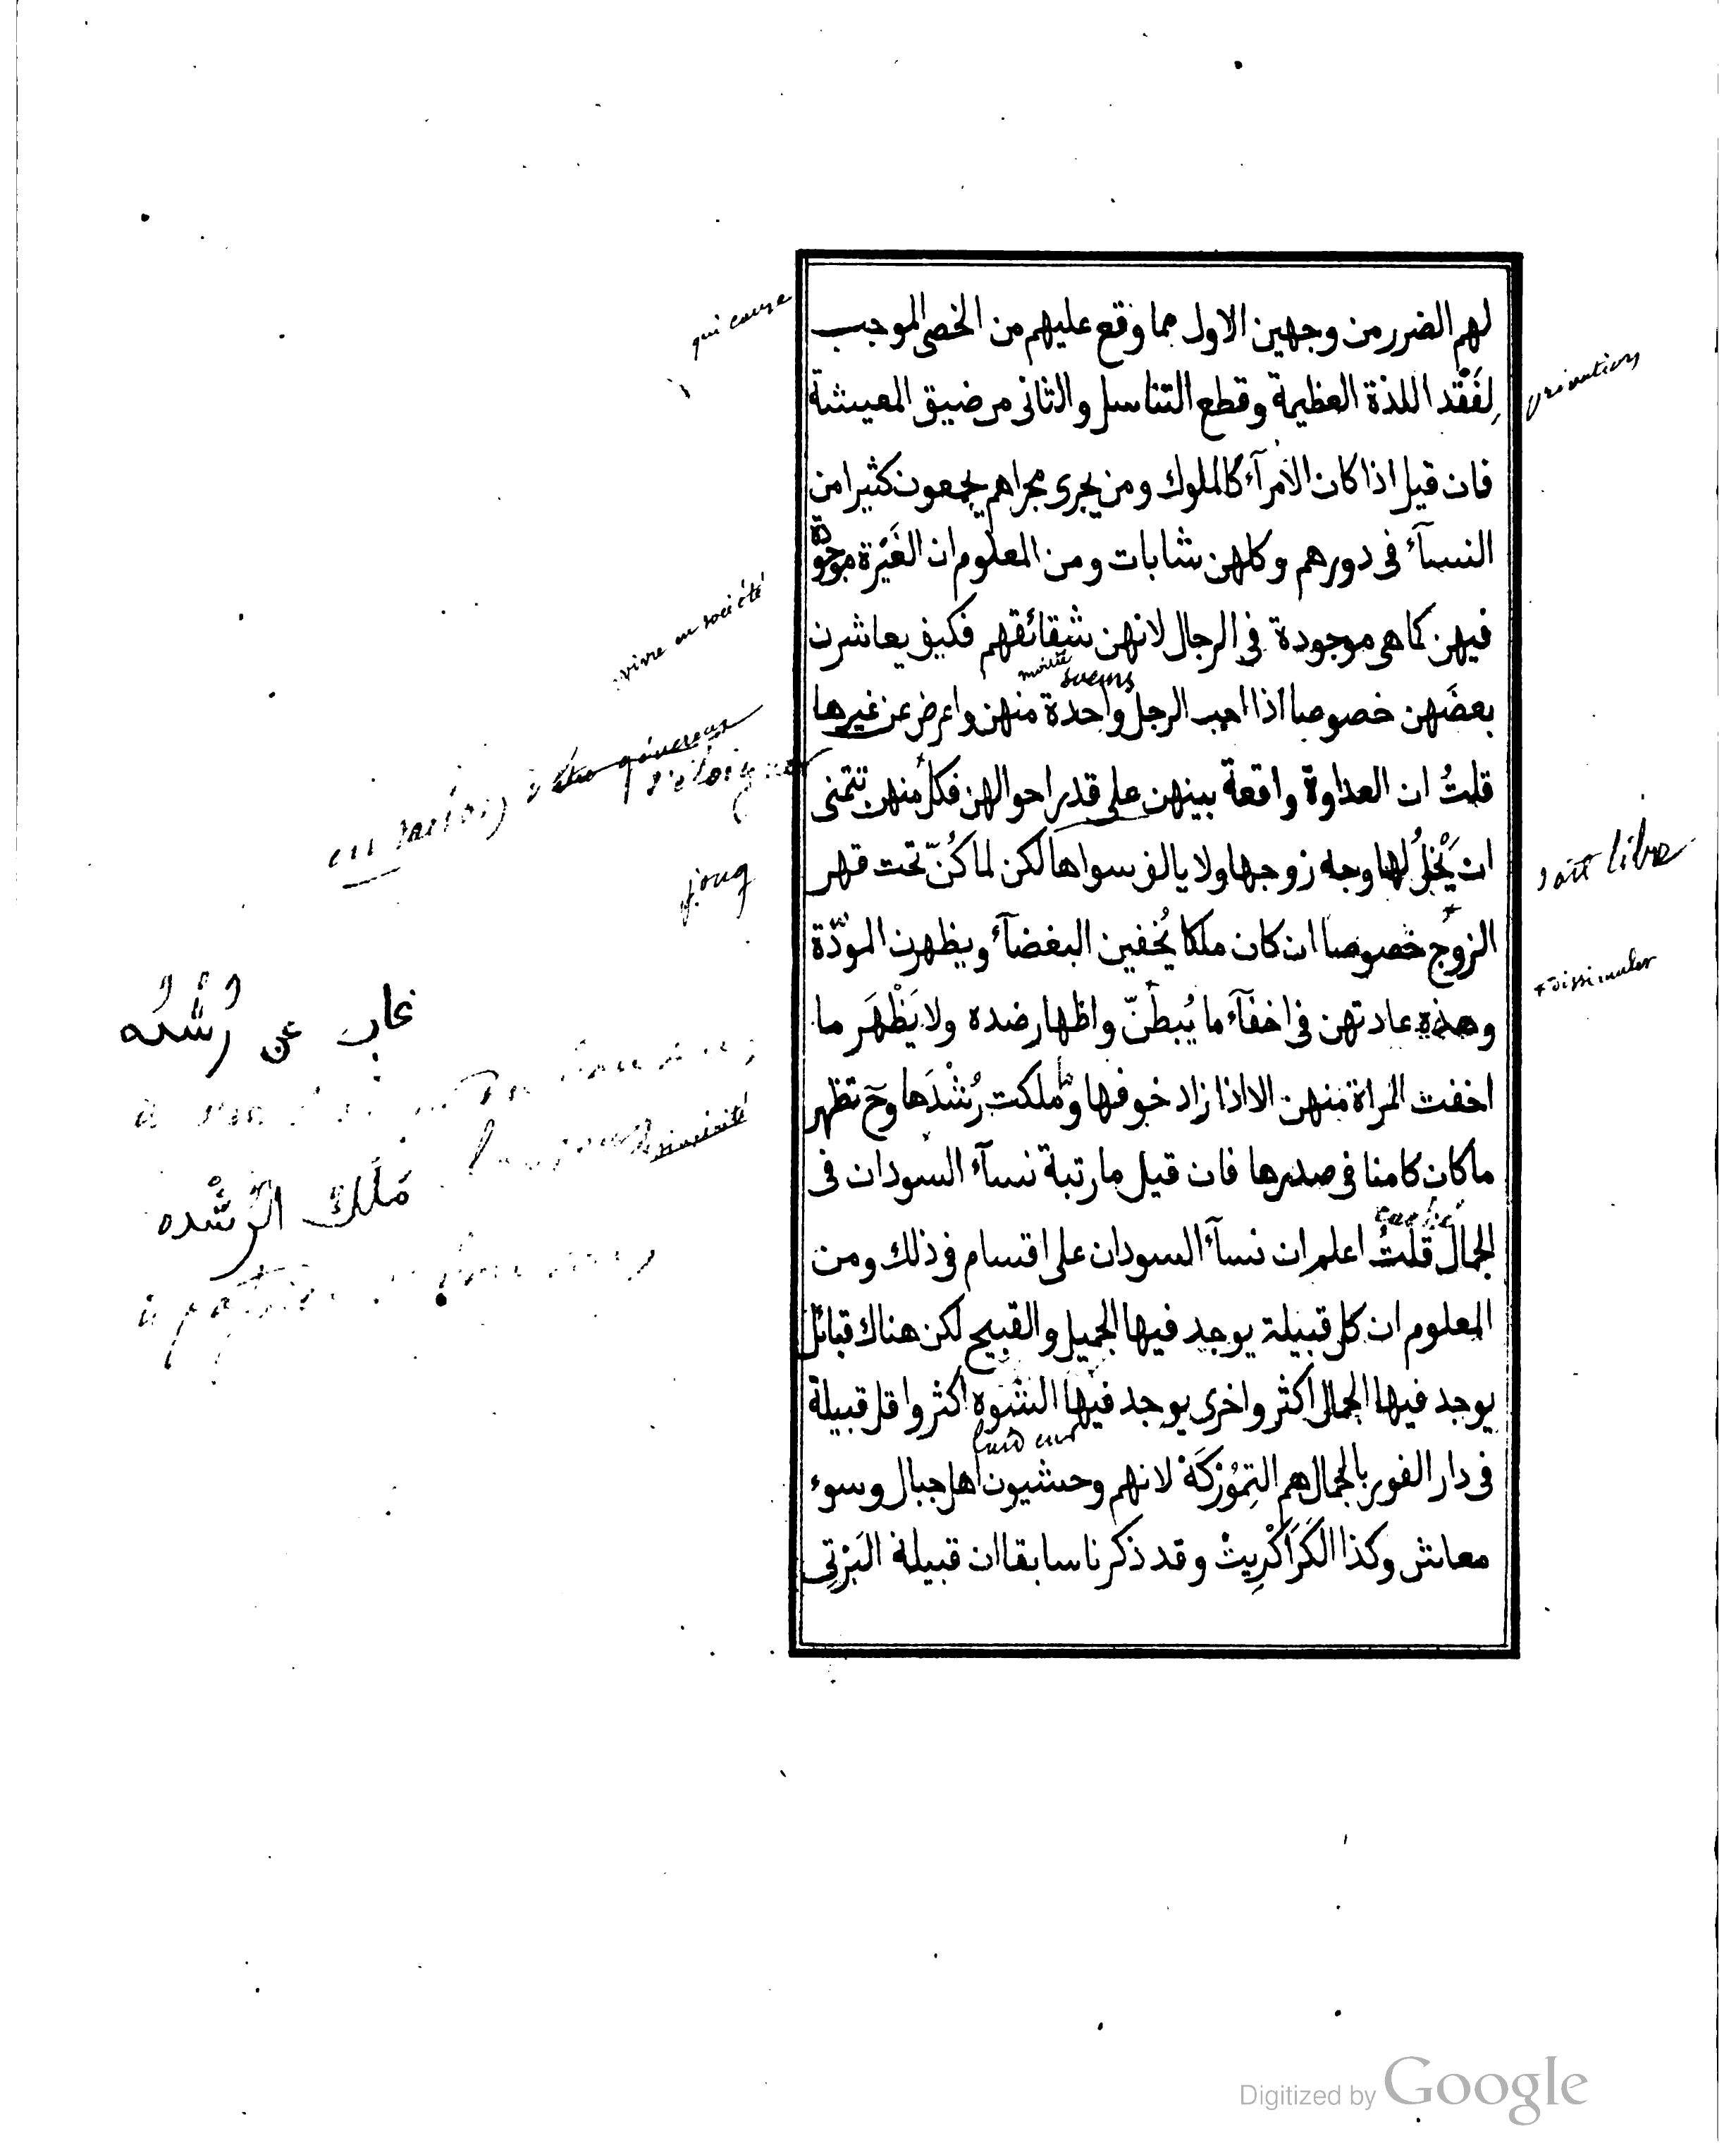 لهم الضرر من وجهين الاول مما وقع عليهم من الخصى الموجب
لِفَقْد اللذة العظيمة وقطع التناسل والثانى من ضيق المعيشة
فان قيل اذا كان الامرآء كالملوك ومن يجرى مجراهم يجمعون كثيرا من
النسآء فى دورهم وكلهن شابات ومن المعلوم ان الغَيْرة موجودة
فيهن كما هى موجودة فى الرجال لانهن شقائقهم فكيف يعاشرن
بعضَهن خصوصا اذا احب الرجل واحدة منهن واعرض عن غيرها
قلتُ ان العداوة واقعة بينهن على قدر احوالهن فكلٌ منهن تتمنى
ان يَخْلُ لها وجه زوجها ولا يالف سواها لكن لما كُنّ تحت قهر
الزوج خصوصا ان كان ملكا يُخفين البغضآء ويظهرن المودّة
وهذه عادتهن فى اخفآء ما يُبطنّ واظهار ضده ولا يَظْهَر ما
اخفت المراة منهن الا اذا زاد خوفها وما ملكت رُشْدَها وح تظهر
ما كان كامنا فى صدرها فان قيل ما رتبة نسآء السودان فى
الجمال قلتُ اعلم ان نسآء السودان على اقسام فى ذلك ومن
المعلوم ان كل قبيلة يوجد فيها الجميل والقبيح لكن هناك قبائل
يوجد فيها الجمال اكثر واخرى يوجد فيها الشوه اكثر واقل قبيلة
فى دار الفور بالجمال هم التِمُوْرْكَهْ لانهم وحشيون اهل جبال وسوء
معاش وكذا الكَرَاكْرِيتْ وقد ذكرنا سابقا ان قبيلة البَرْتِى
qui cause
privation
vivre en société
moitié
soeurs
être généreux
s'éloigner
en raison
joug
soit libre
+ dissimuler
غاب عن رُشْدُه
مَلَك الرُشْده
caché
laideur
Digitized by Google